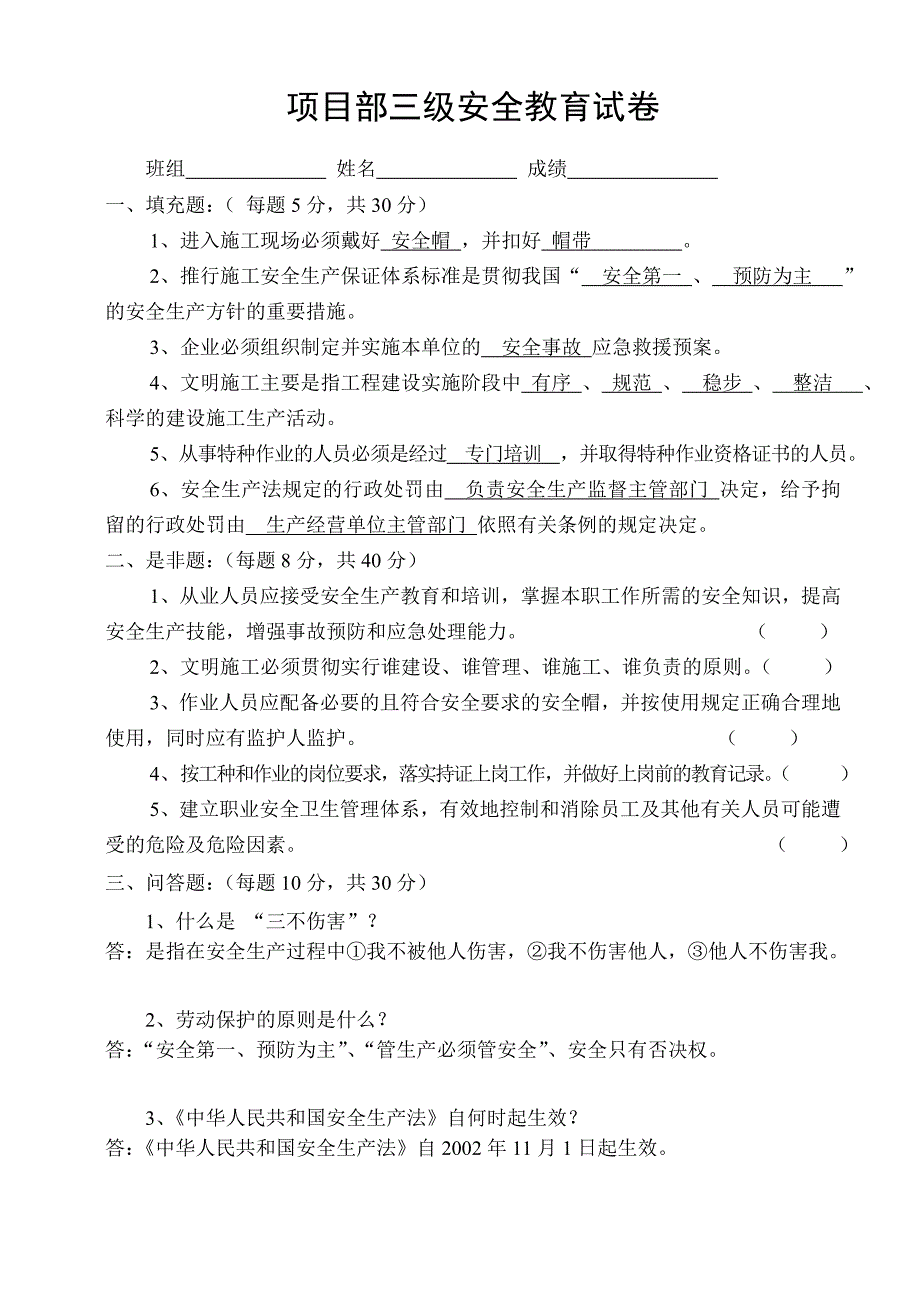 项目部三级安全教育试卷
班组______________ 姓名______________ 成绩_______________
一、填充题：（ 每题 5 分，共 30 分）
1、进入施工现场必须戴好 安全帽 ，并扣好 帽带         。
2、推行施工安全生产保证体系标准是贯彻我国“  安全第一 、  预防为主   ”
的安全生产方针的重要措施。
3、企业必须组织制定并实施本单位的  安全事故 应急救援预案。
4、文明施工主要是指工程建设实施阶段中 有序 、 规范 、  稳步 、  整洁   、
科学的建设施工生产活动。
5、从事特种作业的人员必须是经过  专门培训  ，并取得特种作业资格证书的人员。
6、安全生产法规定的行政处罚由  负责安全生产监督主管部门 决定，给予拘
留的行政处罚由  生产经营单位主管部门 依照有关条例的规定决定。
二、是非题：（每题 8 分，共 40 分）
1、从业人员应接受安全生产教育和培训，掌握本职工作所需的安全知识，提高
安全生产技能，增强事故预防和应急处理能力。 （    ）
2、文明施工必须贯彻实行谁建设、谁管理、谁施工、谁负责的原则。（    ）
3、作业人员应配备必要的且符合安全要求的安全帽，并按使用规定正确合理地
使用，同时应有监护人监护。 （    ）
4、按工种和作业的岗位要求，落实持证上岗工作，并做好上岗前的教育记录。（    ）
5、建立职业安全卫生管理体系，有效地控制和消除员工及其他有关人员可能遭
受的危险及危险因素。 （    ）
三、问答题：（每题 10 分，共 30 分）
1、什么是 “三不伤害”？
答：是指在安全生产过程中①我不被他人伤害，②我不伤害他人，③他人不伤害我。
2、劳动保护的原则是什么？
答：“安全第一、预防为主”、“管生产必须管安全”、安全只有否决权。
3、《中华人民共和国安全生产法》自何时起生效？
答：《中华人民共和国安全生产法》自 2002 年 11 月 1 日起生效。